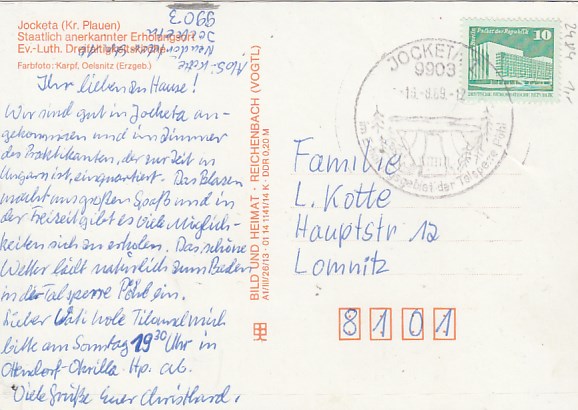 Jocketa (Kr. Plauen)
Staatlich anerkannter Erholungsort
Ev.-Luth. Dreieinigkeitskirche
Farbfoto: Karpf, Oelsnitz (Erzgeb.)
Kotte
Jocketa
9903
Ihr lieben zu Hause!
Wir sind gut in Jocketa an-
gekommen und im Zimmer
des Praktikanten, der zur Zeit in
Ungarn ist, einquartiert. Das Blasen
macht uns großen Spaß und in
der Freizeit gibt es viele Möglich-
keiten sich zu erholen. Das schöne
Wetter lädt natürlich zum Baden
in der Talsperre Pöhl ein.
Lieber Vati hole Tilo und mich
bitte am Sonntag 19 30 Uhr in
Ottendorf-Okrilla Hp. ab.
Viele Grüße Euer Christhard.
BILD UND HEIMAT · REICHENBACH (VOGTL)
A1/III/26/13 · 01 14 1141/14 K · DDR 0,20 M
JOCKETA
9903
der Talsperre Pöhl
10
2484
Familie
L. Kotte
Hauptstr 12
Lomnitz
8101